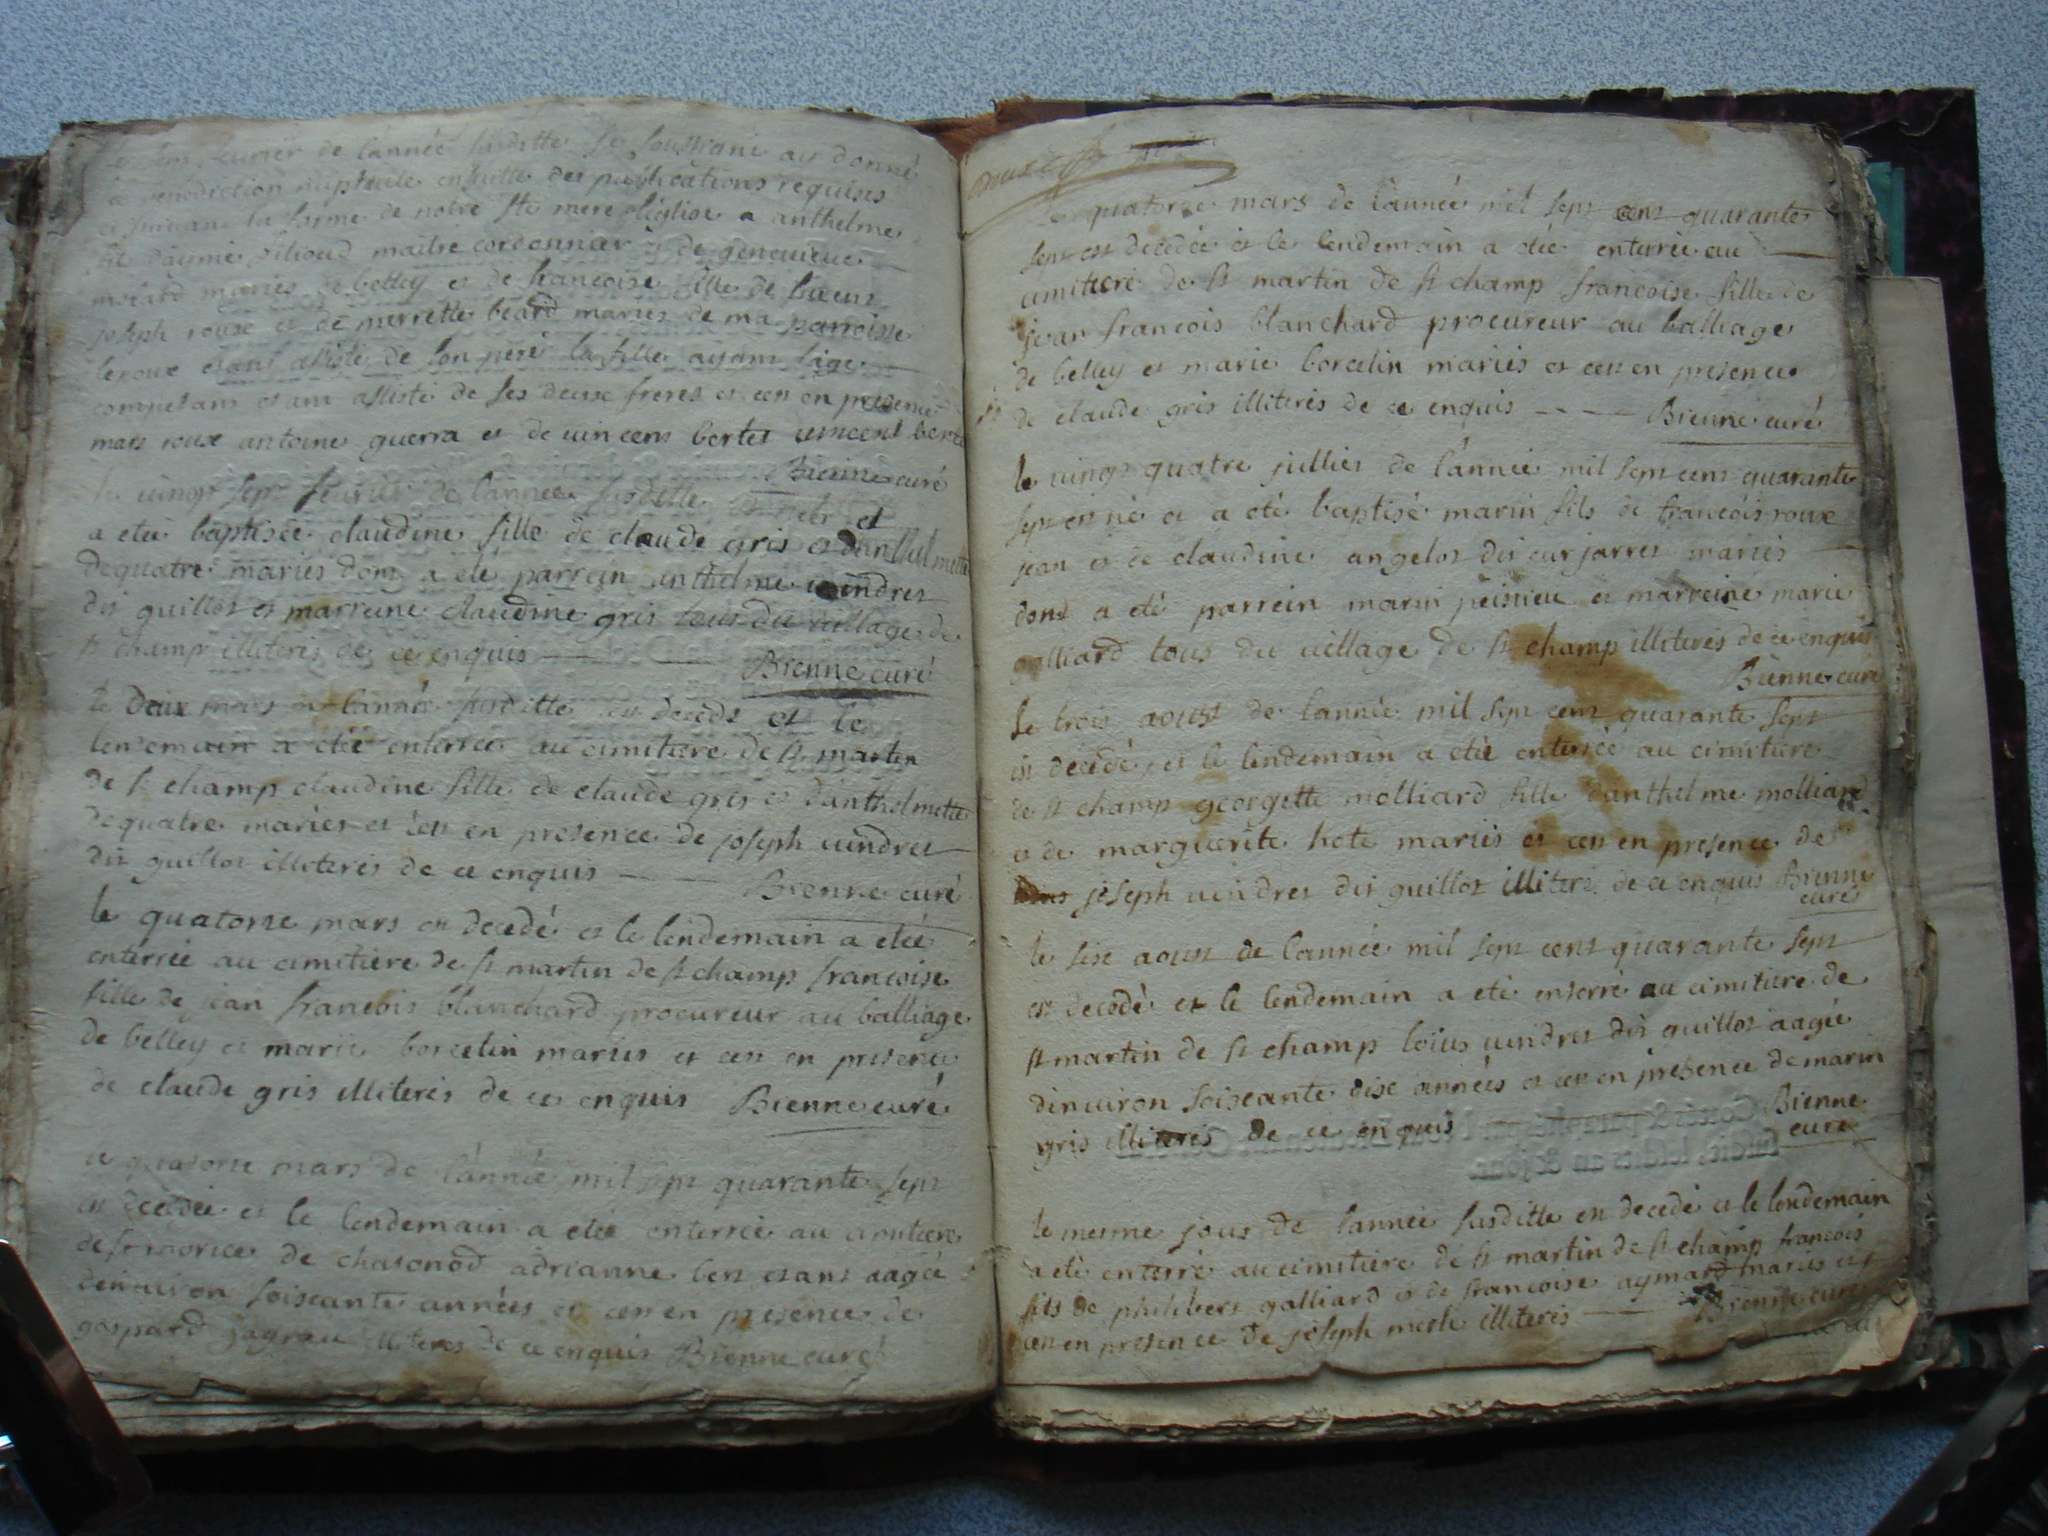 feurier de l'année susditte Je soussigné aÿ donné
la benediction nuptiale ensuitte des publications requises
et suivant la forme de notre ste mere l'église a anthelme
fils d'aimé maitre cordonnier et de genevieve
molard mariés de belley et de francoise fille de
joseph roux et de merrette beard mariés de ma parroisse
le roux etant assisté de son pere la fille ayant l'age
competant etant assisté de ses deux freres et cen en presence
marc roux antoine guerra et de vincent bertet vincent bertet
Bienne curé
le vingt sept feurier de l'année susditte est née et
a eteé baptisée claudine fille de claude gris et danthelmette
dequatre mariés dont a eté parrein anthelme vindret
dit guillot et marreine claudine gris tous du village de
st champ illiterés de ce enquis Bienne curé
le deux mars de l'année susditte est decedé et le
lendemain a eteé enterreé au cimitiere de st martin
de st champ claudine fille de claude gris et danthelmette
dequatre mariés et cen en presence de joseph vindret
dit guillot illiterés de ce enquis Bienne curé
le quatorze mars est decedé et le lendemain a eteé
enterreé au cimitiere de st martin de st champ francoise
fille de jean francois blanchard procureur au balliage
de belley et marie borcelin mariés et cen en presence
de claude gris illiterés de ce enquis Bienne curé
le quatorze mars de l'année mil sept quarante sept
est decedeé et le lendemain a eteé enterreé au cimitiere
de st morice de chasonod adrianne bert etant aageé
denviron soiscante années et cen en presence de
gaspard illiterés de ce enquis Bienne curé
le quatorze mars de l'année mil sept cent quarante
sept est decedeé et le lendemain a eteé enterreé au
cimitiere de st martin de st champ francoise fille de
jean francois blanchard procureur au balliage
de belley et marie borcelin mariés et cen en presence
de claude gris illiterés de ce enquis - - - - Bienne curé
le vingt quatre jullies de l'année mil sept cent quarante
sept est né et a eté baptisé marin fils de francois roux
jean et de claudine angelot dit curjarret mariés
dont a eté parrein marin peisieu et marreine marie
galliard tous du village de st champ illiterés de ce enquis
Bienne curé
le trois aoust de l'année mil sept cent quarante sept
est decedé et le lendemain a eteé enterreé au cimitiere
de st champ georgette molliard fille danthelme molliard
et de marguerite hote mariés et cen en presence de
joseph vindret dit guillot illiteré de ce enquis Bienne
curé
le sixe aoust de l'année mil sept cent quarante sept
est decedé et le lendemain a eté enterré au cimitiere de
st martin de st champ loius vindret dit guillot aageé
denviron soiscante dise années et cen en presence de marin
gris illiterés de ce enquis Bienne
curé
le mesme jous de l'année susditte est decedé et le lendemain
a eté enterré au cimitiere de st martin de st champ francois
fils de philibert galliard et de francoise aymard mariés et
cen en presence de joseph merle illiterés Bienne curé